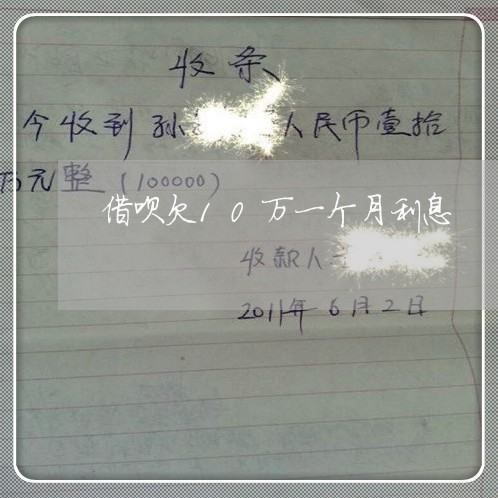 收条
今收到孙 人民币壹拾
万元整（100000）
借呗欠10万一个月利息
收款人
2011年6月2日